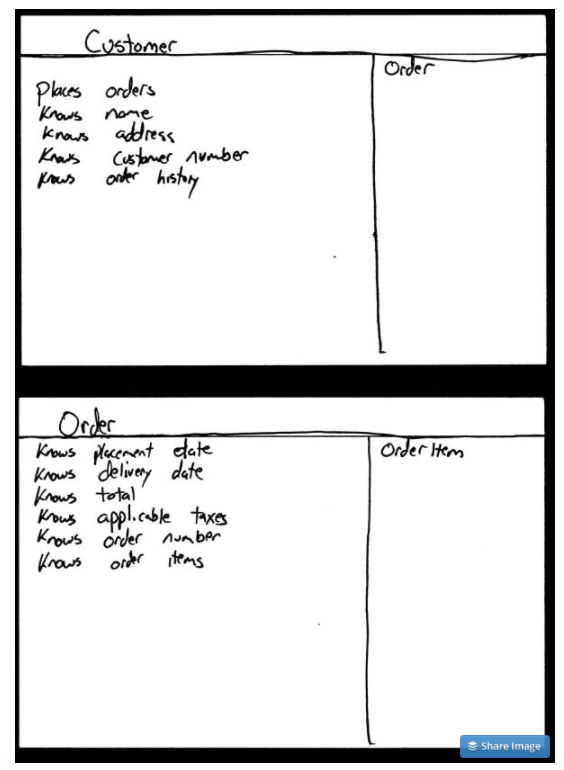 Customer
Order
Places orders
Knows name
Knows address
Knows Customer number
Knows order history
Order
Order Item
Knows placement date
Knows delivery date
Knows total
Knows applicable taxes
Knows order number
Knows order items
Share Image